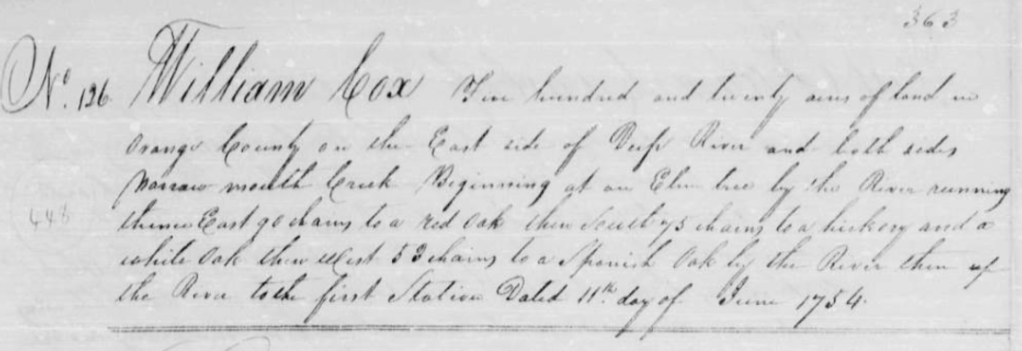 363
No. 126. William Cox Five hundred and twenty acres of land in
Orange County on the East side of Deep River and both sides
Narrow mouth Creek Beginning at an Elm tree by the River running
448
thence East 90 chains to a red Oak then South 75 chains to a hickory and a
white Oak then West 53 chains to a Spanish Oak by the River then up
the River to the first Station Dated 11th day of June 1754.